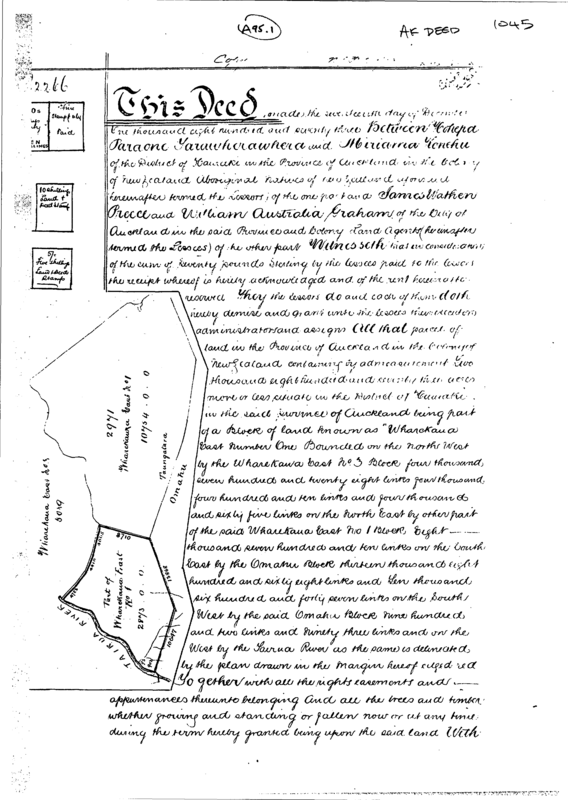 A95.1
AK DEED
1045
Copy
2266
This Deed made the seventeenth day of December
One thousand eight hundred and seventy three Between Hohepa
Paraone Tarawherawhera and Miriama Konehu
of the District of Tauraki in the Province of Auckland in the Colony
of New Zealand Aboriginal Natives of New Zealand
hereinafter termed the Lessors, of the one part and James Wathen
Preece and William Australia Graham of the City of
Auckland in the said Province and Colony Land Agents (hereinafter
termed the Lessees) of the other part Witnesseth that in consideration
of the sum of Seventy pounds Sterling by the lessees paid to the lessors
the receipt whereof is hereby acknowledged and of the rent hereinafter
reserved They the lessors do and each of them doth
hereby demise and grant unto the lessees their executors
administrators and assigns All that parcel of
land in the Province of Auckland in the Colony of
New Zealand containing by admeasurement Two
thousand eight hundred and seventy three acres
more or less situate in the District of Tauraki
in the said province of Auckland being part
of a Block of land known as "Wharekawa
East Number One Bounded on the North West
by the Wharekawa East No 3 Block four thousand
seven hundred and twenty eight links four thousand
four hundred and ten links and four thousand
and sixty five links on the North East by other part
of the said Wharekawa East No 1 Block Eight
thousand seven hundred and ten links on the South
East by the Omahu Block thirteen thousand eight
hundred and sixty eight links and Ten thousand
six hundred and forty seven links on the South
West by the said Omahu Block Nine hundred
and two links and Ninety three links and on the
West by the Tairua River as the same is delineated
by the plan drawn in the margin hereof edged red
Together with all the rights easements and
appurtenances thereunto belonging And all the trees and timber
whether growing and standing or fallen now or at any time
during the term hereby granted being upon the said land With
Paid
10 Shilling
Land &
Deed
5/-
Five Shillings
Land & Deed
Stamps
2971
Wharekawa East No 1
10754 . 0 . 0
Omahu
Wharekawa East No 3
8019
8710
Part of
Wharekawa East
No 1
2873 . 0 . 0
TAIRUA RIVER